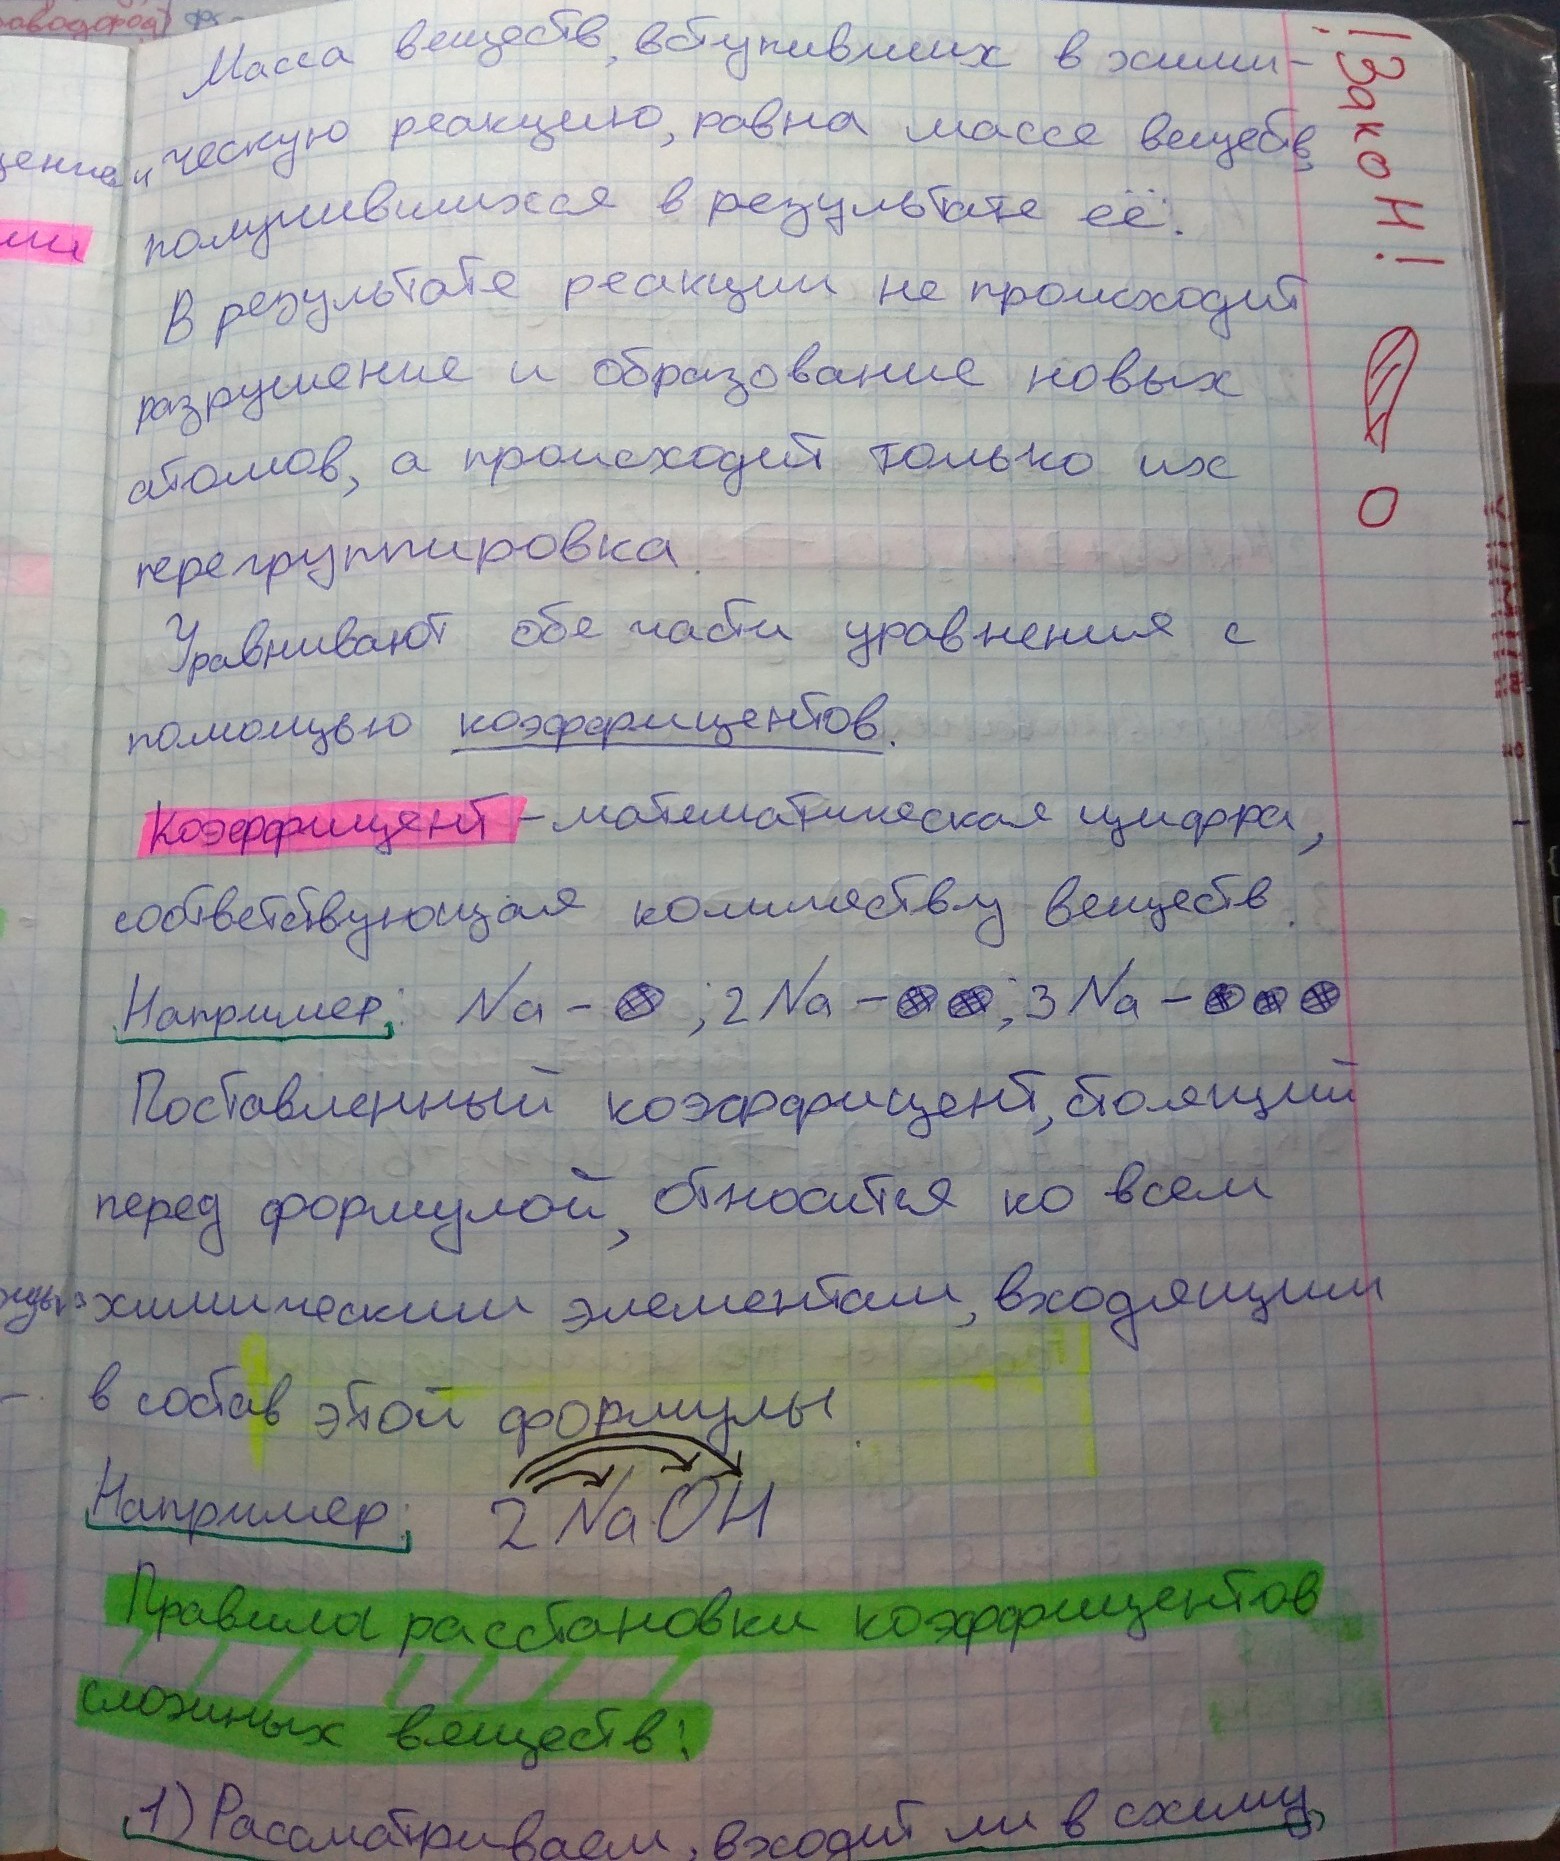 Масса веществ, вступивших в хими-
ческую реакцию, равна массе веществ,
получившихся в результате её.
В результате реакции не происходит
разрушение и образование новых
атомов, а происходит только их
перегруппировка.
Уравнивают обе части уравнения с
помощью коэффициентов.
Коэффициент - математическая цифра,
соответствующая количеству веществ.
Например: Na - ; 2Na - ; 3Na -
Поставленный коэффициент, стоящий
перед формулой, относится ко всем
химическим элементам, входящим
в состав этой формулы.
Например: 2NaOH
Правила расстановки коэффициентов
сложных веществ:
1) Рассматриваем, входит ли в схему
!Закон!